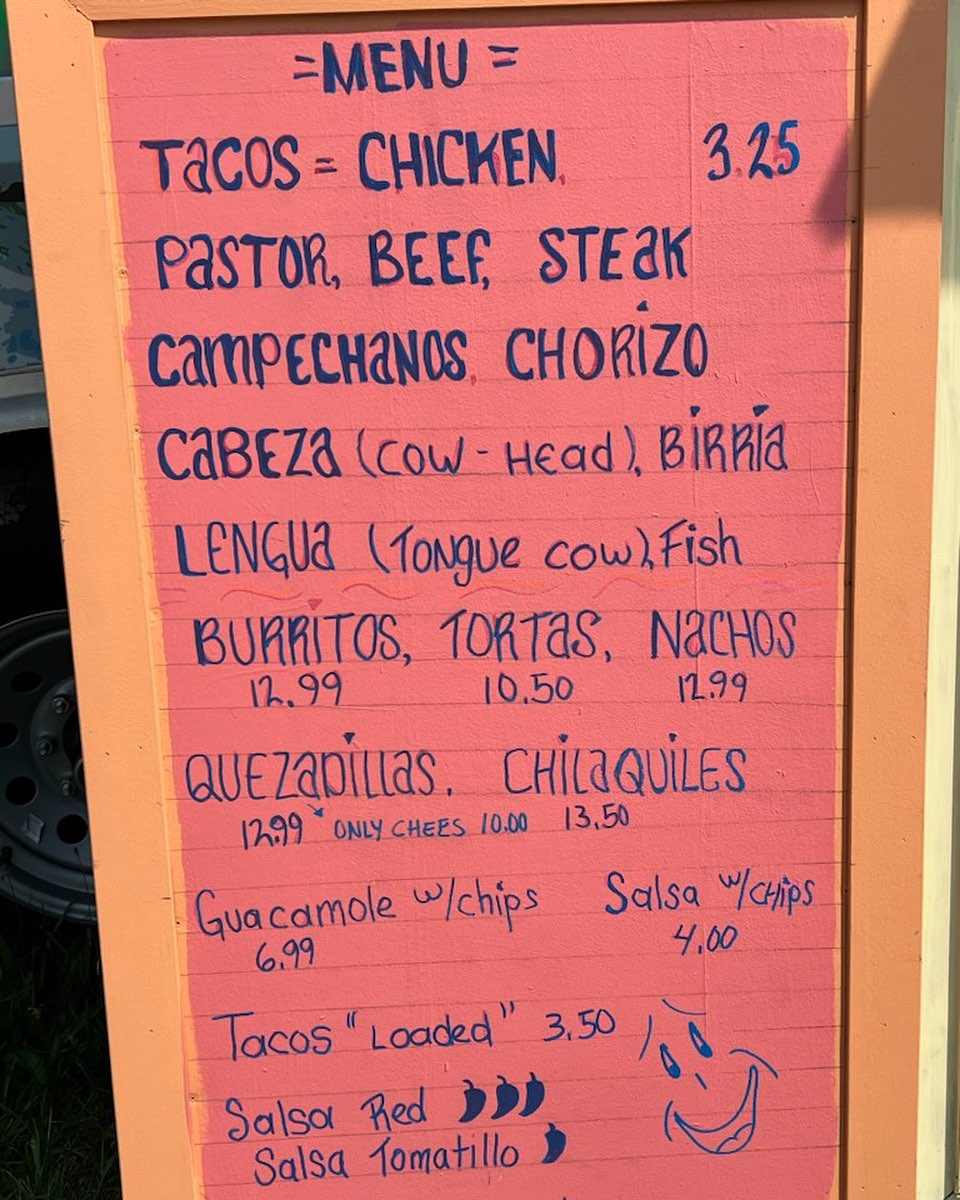 =MENU=
TACOS = CHICKEN, 3.25
PASTOR, BEEF, STEAK
CAMPECHANOS, CHORIZO
CABEZA (COW-HEAD), BIRRIA
LENGUA (TONGUE COW), Fish
BURRITOS, TORTAS, NACHOS
12.99 10.50 12.99
QUEZADILLAS, CHILAQUILES
12.99 ONLY CHEES 10.00 13.50
Guacamole w/chips Salsa w/CHips
6.99 4.00
Tacos "Loaded" 3.50
Salsa Red
Salsa Tomatillo